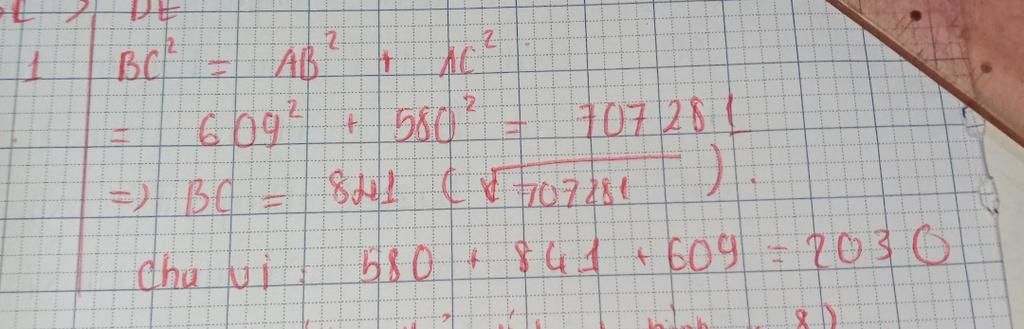 1 BC² = AB² + AC²
= 609² + 580² = 707281
=> BC = 841 (√707281).
Chu vi: 580 + 841 + 609 = 2030